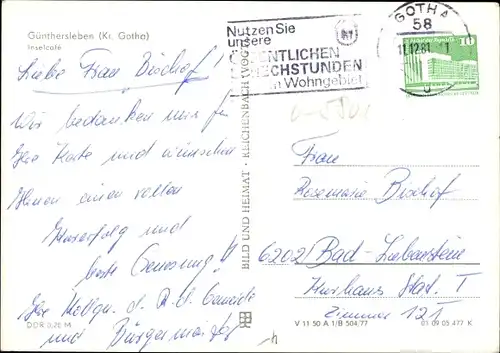 Günthersleben (Kr. Gotha)
Inselcafé
Liebe Frau Bischof!
Wir bedanken uns für
Ihre Karte und wünschen
Ihnen einen vollen
Kurerfolg und
beste Genesung!
Ihre d.
und Bürgermeister
DDR 0,20 M
BILD UND HEIMAT · REICHENBACH (VOGTL)
Nutzen Sie
unsere
ÖFFENTLICHEN
SPRECHSTUNDEN
im Wohngebiet
GOTHA
58
11.12.81
10
Frau
Rosemarie Bischof
6202 Bad-Liebenstein
Kurhaus Stat. I
Zimmer 121
V 11 50 A 1/B 504/77
01 09 05 477 K